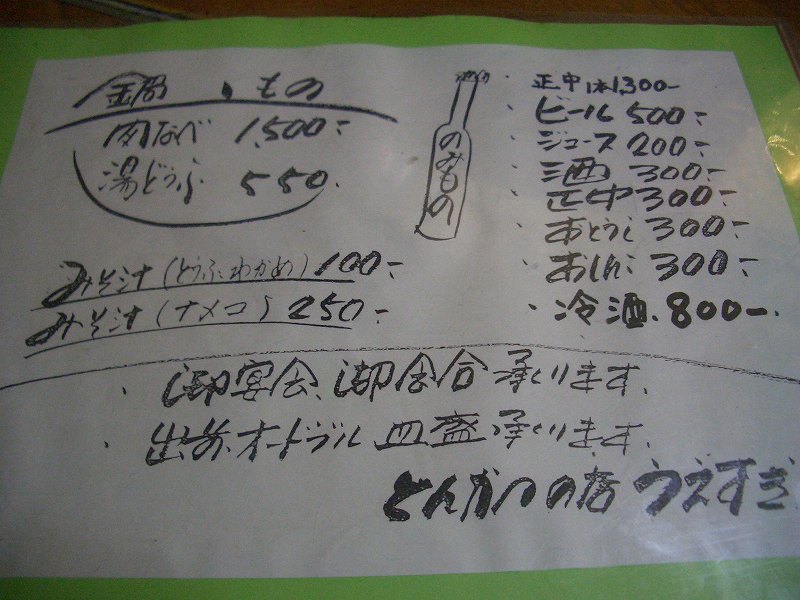 鍋、もの
肉なべ 1,500-
湯どうふ 550.
みそ汁(とうふ、わかめ) 100-
みそ汁(ナメコ) 250-
のみもの
・正中 1本1,300-
・ビール 500-
・ジュース 200-
・酒 300-
・正中 300-
・おとうし 300-
・おしんこ 300-
・冷酒.800-
・御宴会、御会合承ります.
・出前オードブル 皿盛承ります.
とんかつの店 うえすぎ